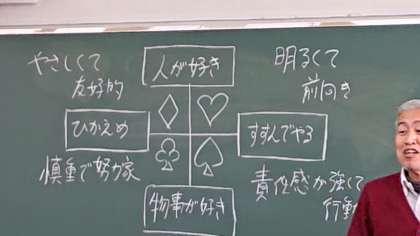 やさしくて
友好的
人が好き
明るくて
前向き
ひかえめ
すすんでやる
慎重で努力家
物事が好き
責任感が強くて
行動